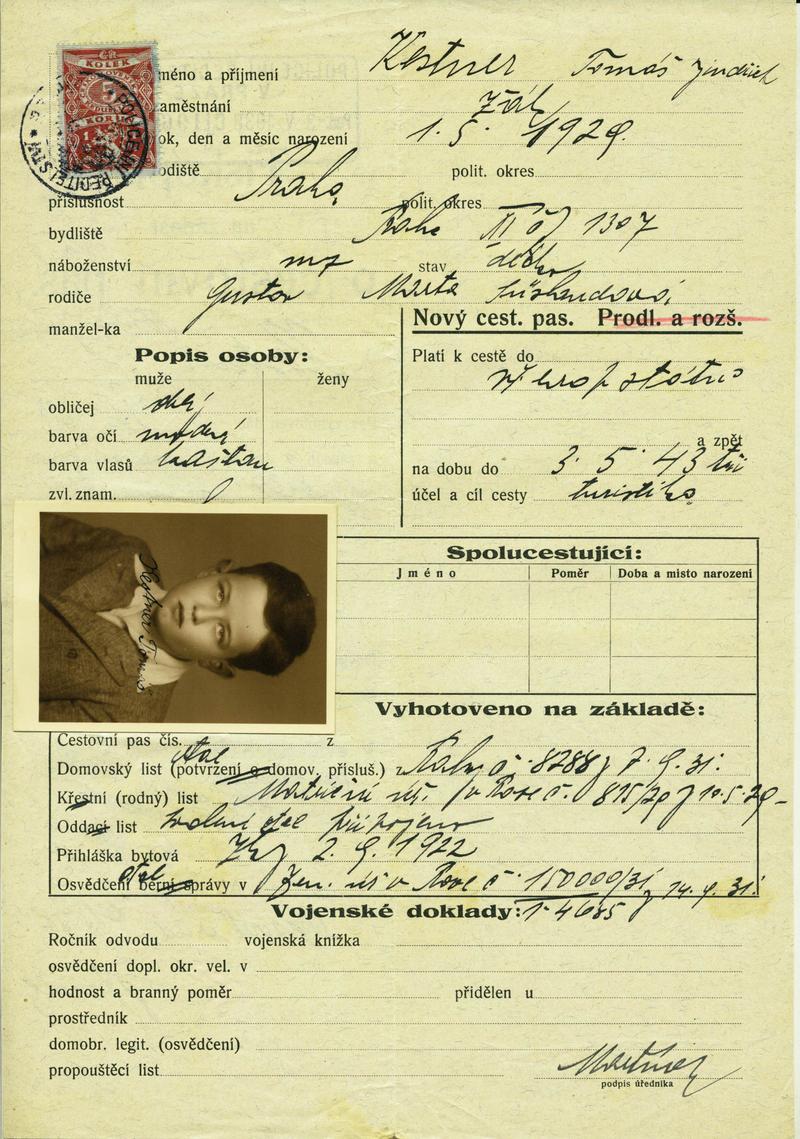 KOLEK
méno a příjmení Kestner Tomáš Jindřich
aměstnání žák
ok, den a měsíc narození 1. 5. 1929.
odiště Praha polit. okres
příslušnost polit. okres
bydliště Praha XI č 1307
náboženství stav
rodiče Gustav Marta
manžel-ka
Nový cest. pas. Prodl. a rozš.
Popis osoby:
muže ženy
obličej
barva očí modré
barva vlasů kaštan
zvl. znam.
Platí k cestě do
států
a zpět
na dobu do 3. 5. 43
účel a cíl cesty turistika
Kestner Tomáš
Spolucestující:
Jméno Poměr Doba a místo narození
Vyhotoveno na základě:
Cestovní pas čís. z
Domovský list (potvrzení o domov. přísluš.) z Prahy č. 8288 z 7. 9. 31.
Křestní (rodný) list v Praze č. 815/29 z 10. 5. 29
Oddací list
Přihláška bytová 2. 9. 1922
Osvědčení berní správy v v Praze č. 150000/31 z 14. 9. 31.
1-4685
Vojenské doklady:
Ročník odvodu vojenská knížka
osvědčení dopl. okr. vel. v
hodnost a branný poměr přidělen u
prostředník
domobr. legit. (osvědčení)
propouštěcí list
podpis úředníka